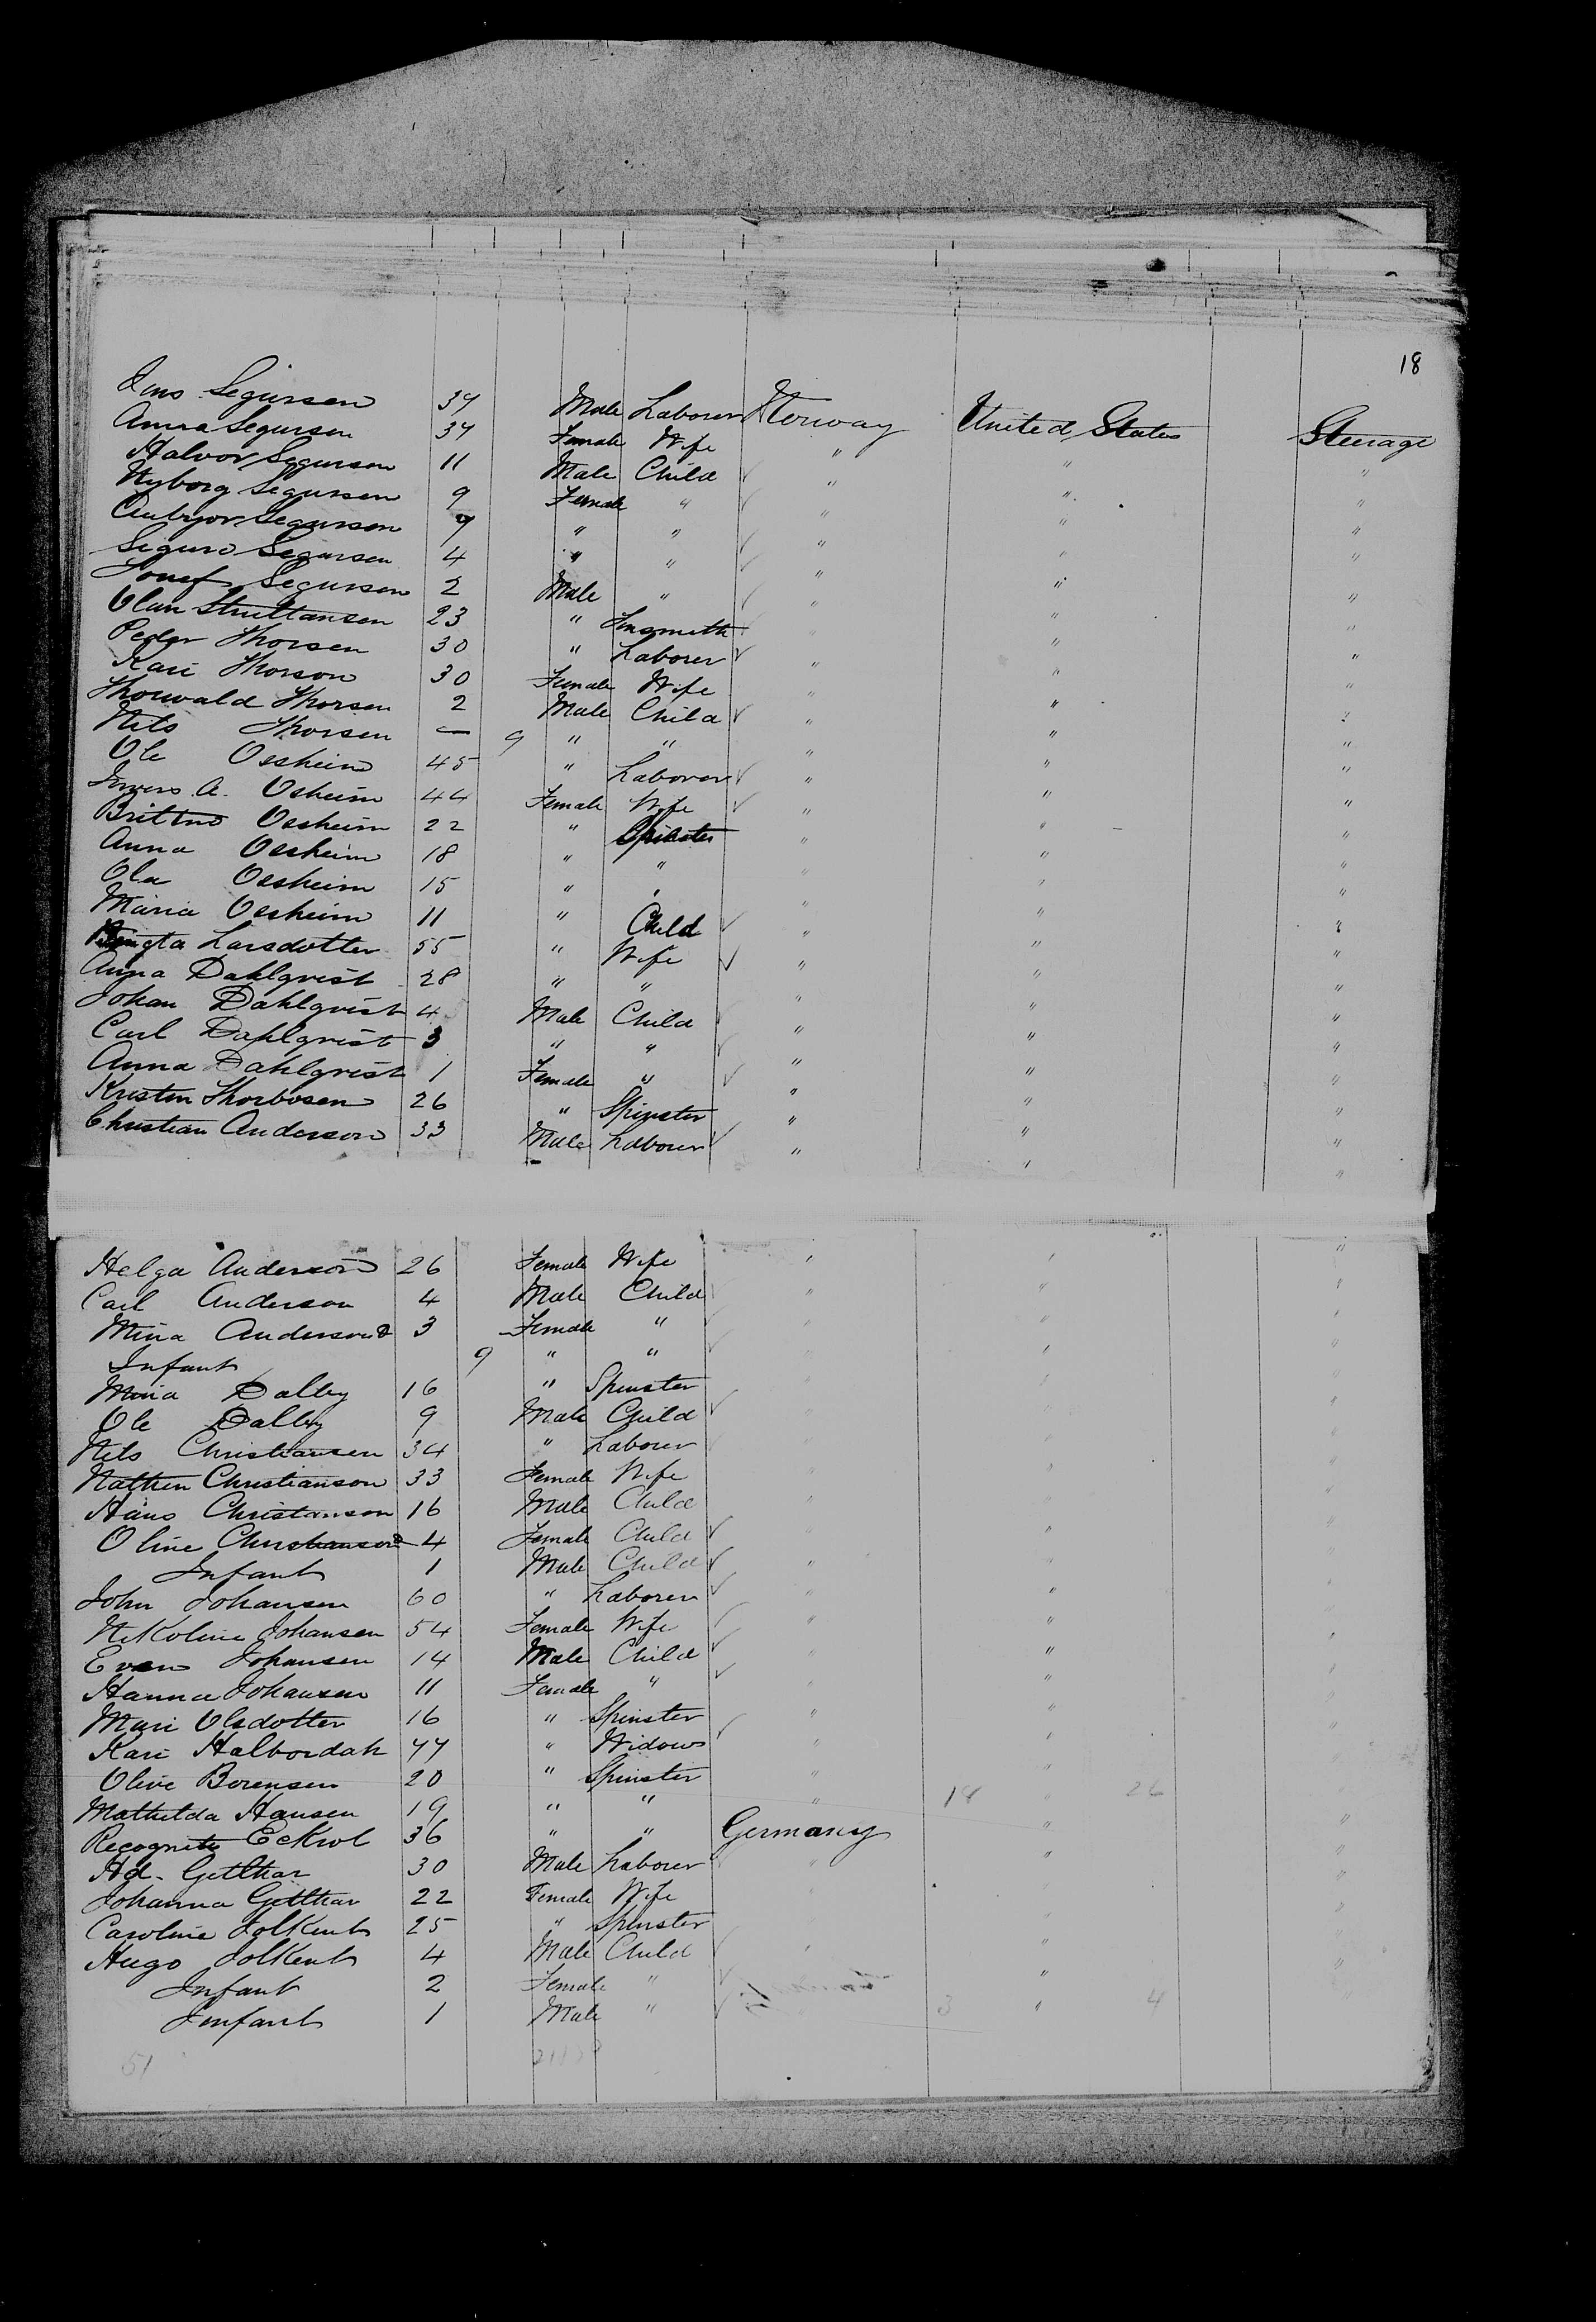 18
Jens Segursen 37 Male Laborer Norway United States Steerage
Anna Segursen 37 Female Wife " " "
Halvor Segursen 11 Male Child " " "
Nyborg Segursen 9 Female " " " "
Segursen 7 " " " " "
Sigurd Segursen 4 " " " " "
Josef Segursen 2 Male " " " "
Olan 23 " Tinsmith " " "
Peder Thorsen 30 " Laborer " " "
Kari Thorson 30 Female Wife " " "
Thorvald Thorsen 2 Male Child " " "
Nils Thorsen — 9 " " " " "
Ole Oesheim 45 " Laborer " " "
A. Osheim 44 Female Wife " " "
Oesheim 22 " Spinster " " "
Anna Oesheim 18 " " " " "
Ola Oesheim 15 " " " " "
Maria Oesheim 11 " Child " " "
Bengta Larsdotter 55 " Wife " " "
Anna Dahlqvist 28 " " " " "
Johan Dahlqvist 4 Male Child " " "
Carl Dahlqvist 3 " " " " "
Anna Dahlqvist 1 Female " " " "
Kristin Thorbosen 26 " Spinster " " "
Christian Anderson 33 Male Laborer " " "
Helga Anderson 26 Female Wife " " "
Carl Anderson 4 Male Child " " "
Mina Anderson 3 Female " " " "
Infant 9 " " " " "
Maria Dalby 16 " Spinster " " "
Ole Dalby 9 Male Child " " "
Nels Christiansen 34 " Laborer " " "
Nathen Christianson 33 Female Wife " " "
Hans Christianson 16 Male Child " " "
Oline Christianson 4 Female Child " " "
Infant 1 Male Child " " "
John Johansen 60 " Laborer " " "
Nikoline Johansen 54 Female Wife " " "
Even Johansen 14 Male Child " " "
Hanna Johansen 11 Female " " " "
Mari Olsdotter 16 " Spinster " " "
Kari Halbordah 77 " Widow " " "
Olive Borensen 20 " Spinster " " "
Mathilda Hansen 19 " " " 18 " 26
Eckrol 36 " " Germany " "
Ad. Getthar 30 Male Laborer " " "
Johanna Getthar 22 Female Wife " " "
Caroline Folkent 25 " Spinster " " "
Hugo Folkent 4 Male Child " " "
Infant 2 Female " " "
Infant 1 Male " 3 " 4
51